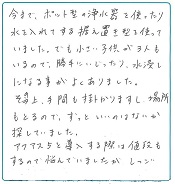 今まで、ポット型の浄水器を使ったり
水を入れてする据え置き型を使って
いました。でも小さい子供が3人も
いるので、勝手にいじったり、水浸し
になる事がよくありました。
その上、手間も掛かりますし、場所
もとるので、ずっといいのはないか
探していました。
アクアスを導入する際は値段も
するので悩んでいましたが